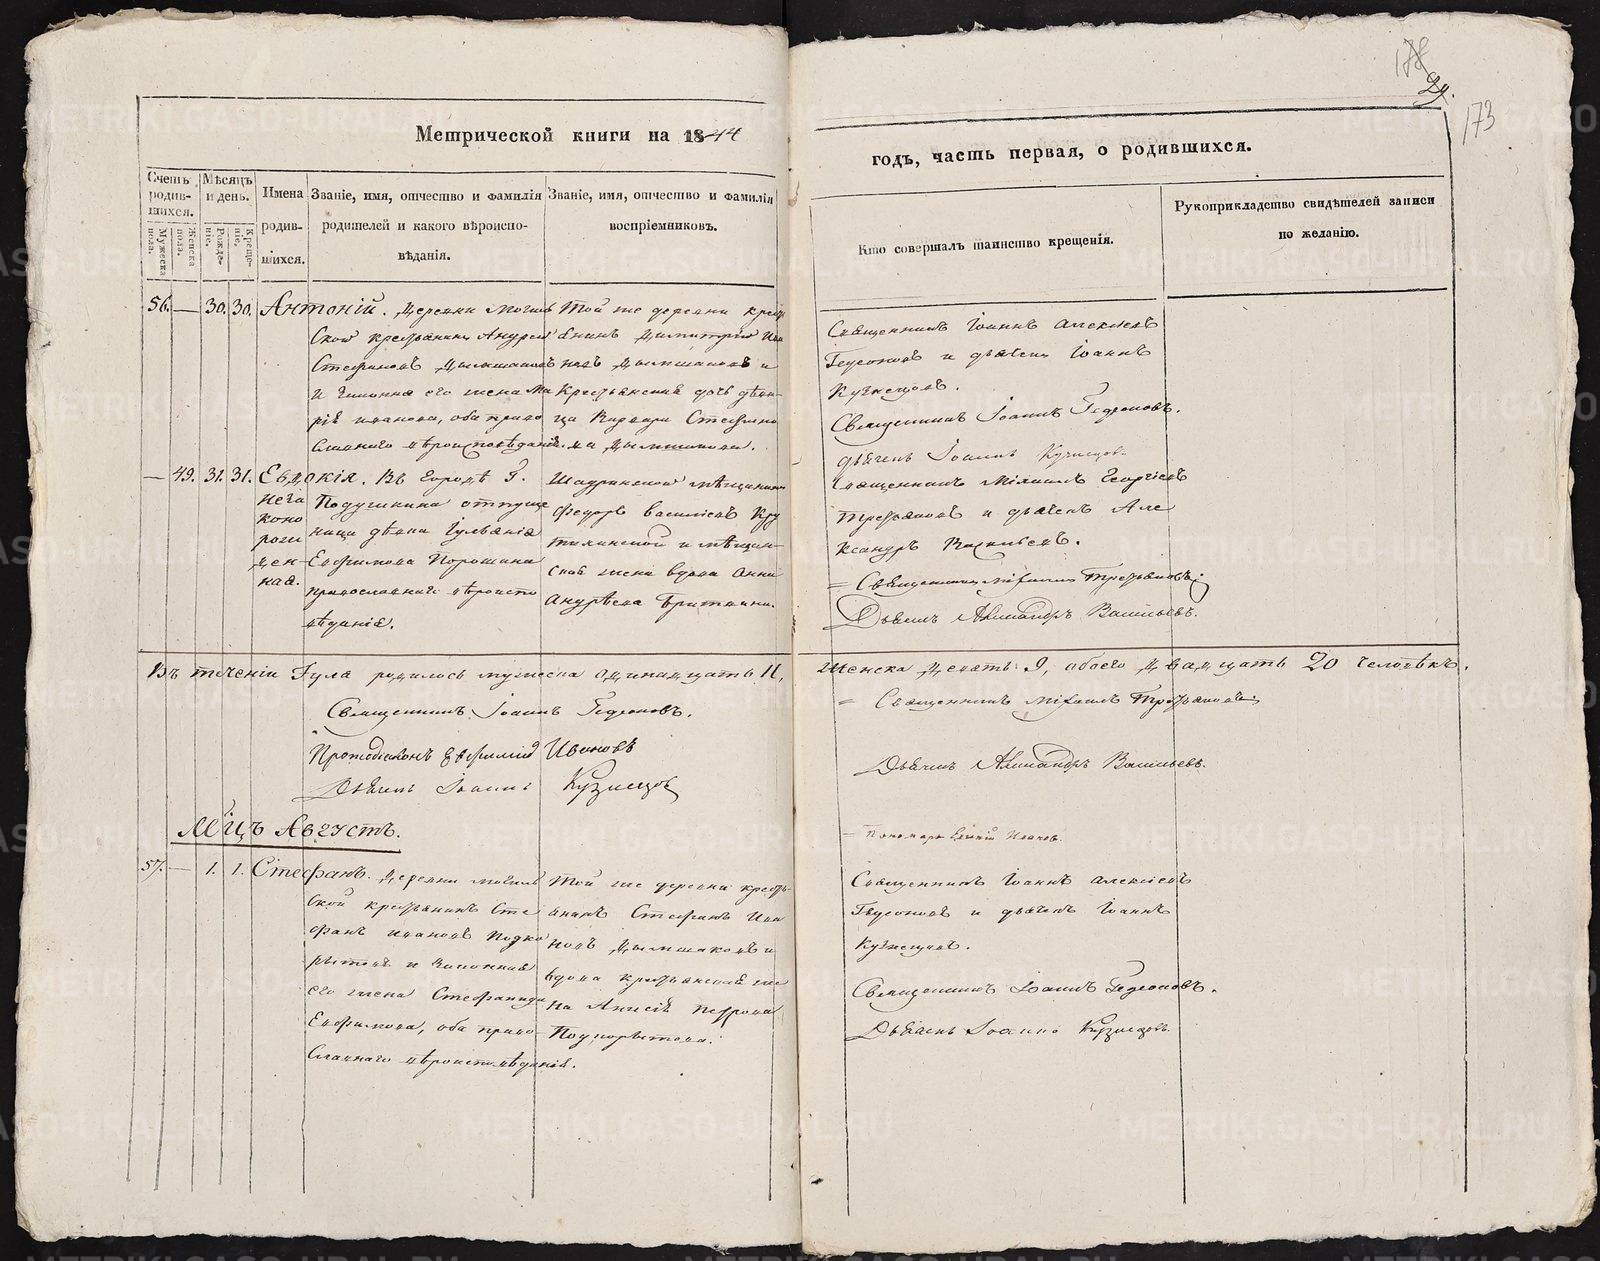 178
29.
173
Метрической книги на 1844
годъ, часть первая, о родившихся.
Счетъ родив-шихся.
Мужеска пола.
Женска пола.
Мѣсяцъ и день.
Рожде-ніе.
Креще-ніе.
Имена родив-шихся.
Званіе, имя, отчество и фамилія родителей и какого вѣроиспо-вѣданія.
Званіе, имя, отчество и фамилія воспріемниковъ.
Кто совершалъ таинство крещенія.
Рукоприкладство свидѣтелей записи по желанію.
56. — 30. 30. Антоній.
Деревни Могиль
ской крестьянинъ Андрей
Стефановъ
и законная его жена Ма
рія Иванова, оба право
славнаго вѣроисповѣданія.
Той же деревни кресть
янинъ Димитрій Ива
новъ и
крестьянская дочь дѣви-
ца Варвара Стефано
ва
Священникъ Іоаннъ Алексіевъ
Гедеоновъ и дьячекъ Іоаннъ
Кузнецовъ.
Священникъ Іоаннъ Гедеоновъ.
дьячекъ Іоаннъ Кузнецовъ.
— 49. 31. 31. Евдокія.
незаконо рожден-ная.
Въ городѣ Г.
Подушкина отпуще
ница дѣвка Іуліанія
Евфимова Порошина
православнаго вѣроиспо
вѣданія.
Шадринской мѣщанинъ
Федоръ Василіевъ
и мѣщан-
ская жена вдова Анна
Андрѣева
Священникъ Михаилъ Георгіевъ
и дьячекъ Але
ксандръ Васильевъ.
= Священникъ Михаилъ
Дьячекъ Александръ Васильевъ.
Въ теченіи Іула родилось мужеска одинадцать 11,
женска девять 9, обоего двадцать 20 человѣкъ.
Священникъ Іоаннъ Гедеоновъ.
Протодіаконъ Евфимій Ивановъ
Дьячекъ Іоаннъ Кузнецовъ
= Священникъ Михаилъ
Дьячекъ Александръ Васильевъ.
= Пономарь Ивановъ.
Мцъ Августъ.
57. — 1. 1. Стефанъ.
Деревни Могиль
ской крестьянинъ Сте
фанъ Ивановъ Подко
рытовъ и законная
его жена Стефанида
Евфимова, оба право-
славнаго вѣроисповѣданія.
Той же деревни кресть-
янинъ Стефанъ Ива
новъ и
вдова крестьянская же
на Анисія Петрова
Подкорытова.
Священникъ Іоаннъ Алексіевъ
Гедеоновъ и дьячекъ Іоаннъ
Кузнецовъ.
Священникъ Іоаннъ Гедеоновъ.
Дьячекъ Іоаннъ Кузнецовъ.
METRIKI.GASO-URAL.RU